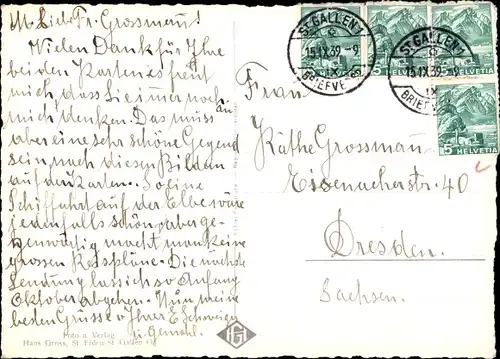 M. Lieb. Fr. Grossmann!
Vielen Dank für Ihre
beiden Karten es freut
mich, dass Sie immer noch an
mich denken. Das muss
aber eine sehr schöne Gegend
sein nach diesen Bildern
auf der Karten. So eine
Schiffahrt auf der Elbe wäre
jedenfalls schön, aber ge-
genwärtig macht man keine
grossen Reispläne. Die nächste
Sendung lass ich so Anfang
Oktober abgehen. Nun meine
besten Grüsse v. Ihrer E. Schweizer
u. Gemahl.
Foto u. Verlag
Hans Gross, St. Fiden-St. Gallen O
ST. GALLEN 1
15.IX.39.-9
BRIEFVE
ST. GALLEN 1
15.IX.39.-9
BRIEFVE
5 HELVETIA
5 HELVETIA
Frau
Käthe Grossmann
Eisenacherstr. 40
Dresden.
Sachsen.